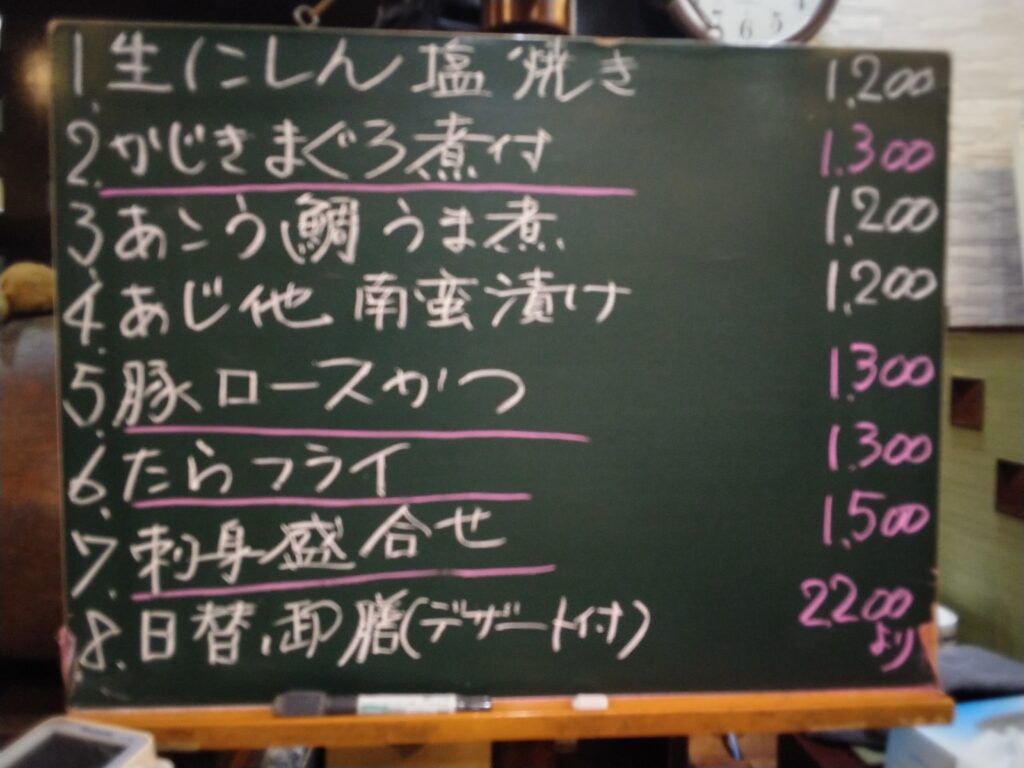 1. 生にしん塩焼き 1,200
2. かじきまぐろ煮付 1,300
3. あこう鯛うま煮 1,200
4. あじ他 南蛮漬け 1,200
5. 豚ロースかつ 1,300
6. たらフライ 1,300
7. 刺身盛合せ 1,500
8. 日替御膳(デザート付) 2,200
より